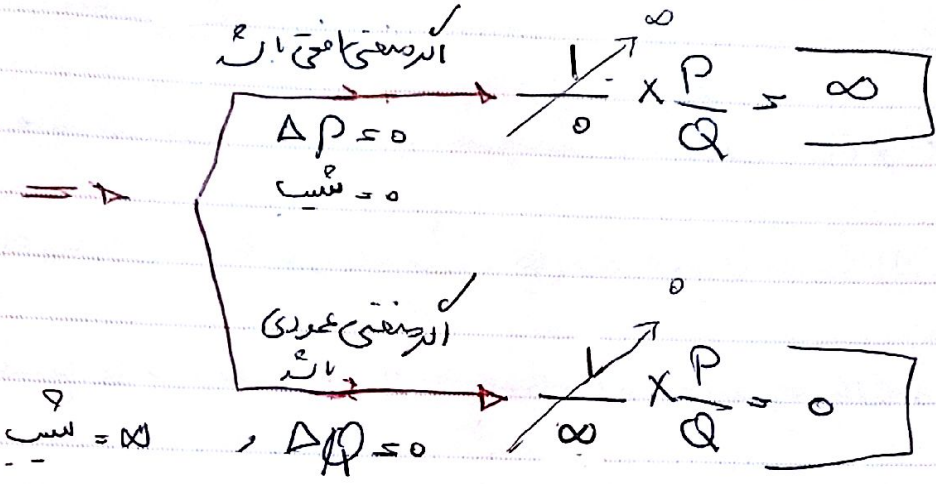 اگر منحنی افقی باشد
ΔP = 0
شیب = 0
1/0 ∞ × P/Q = ∞
اگر منحنی عمودی
باشد
شیب = ∞ , ΔQ = 0
1/∞ 0 × P/Q = 0